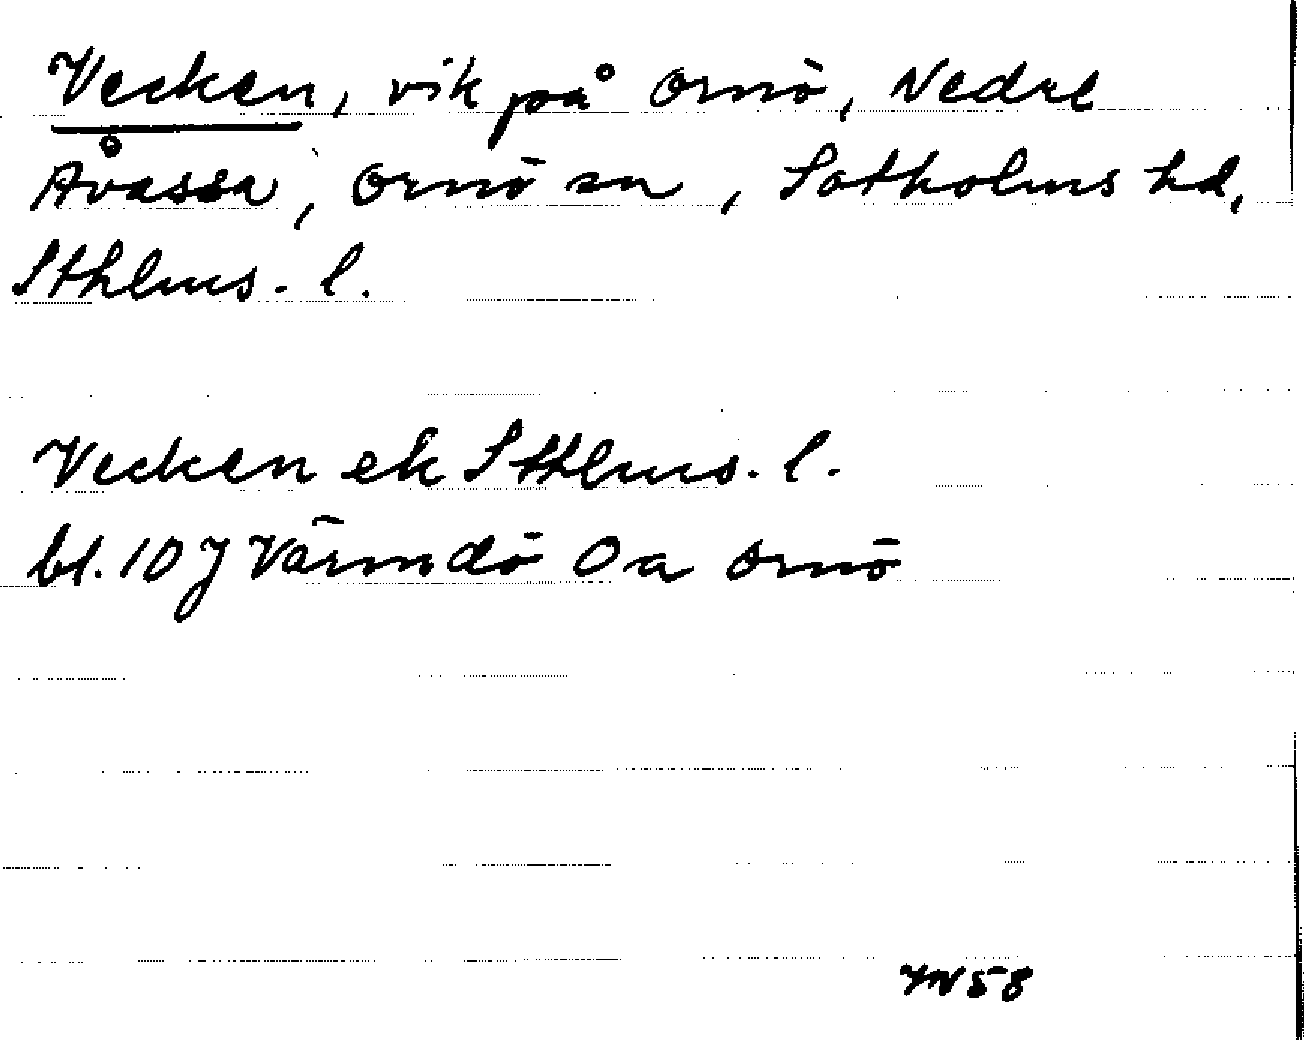 Vecken, vik på Ornö, Nedre
Åvassa, Ornö sn, Sotholms hd,
Sthlms. l.
Vecken ek Sthlms. l.
bl. 10 J Värmdö Oa Ornö